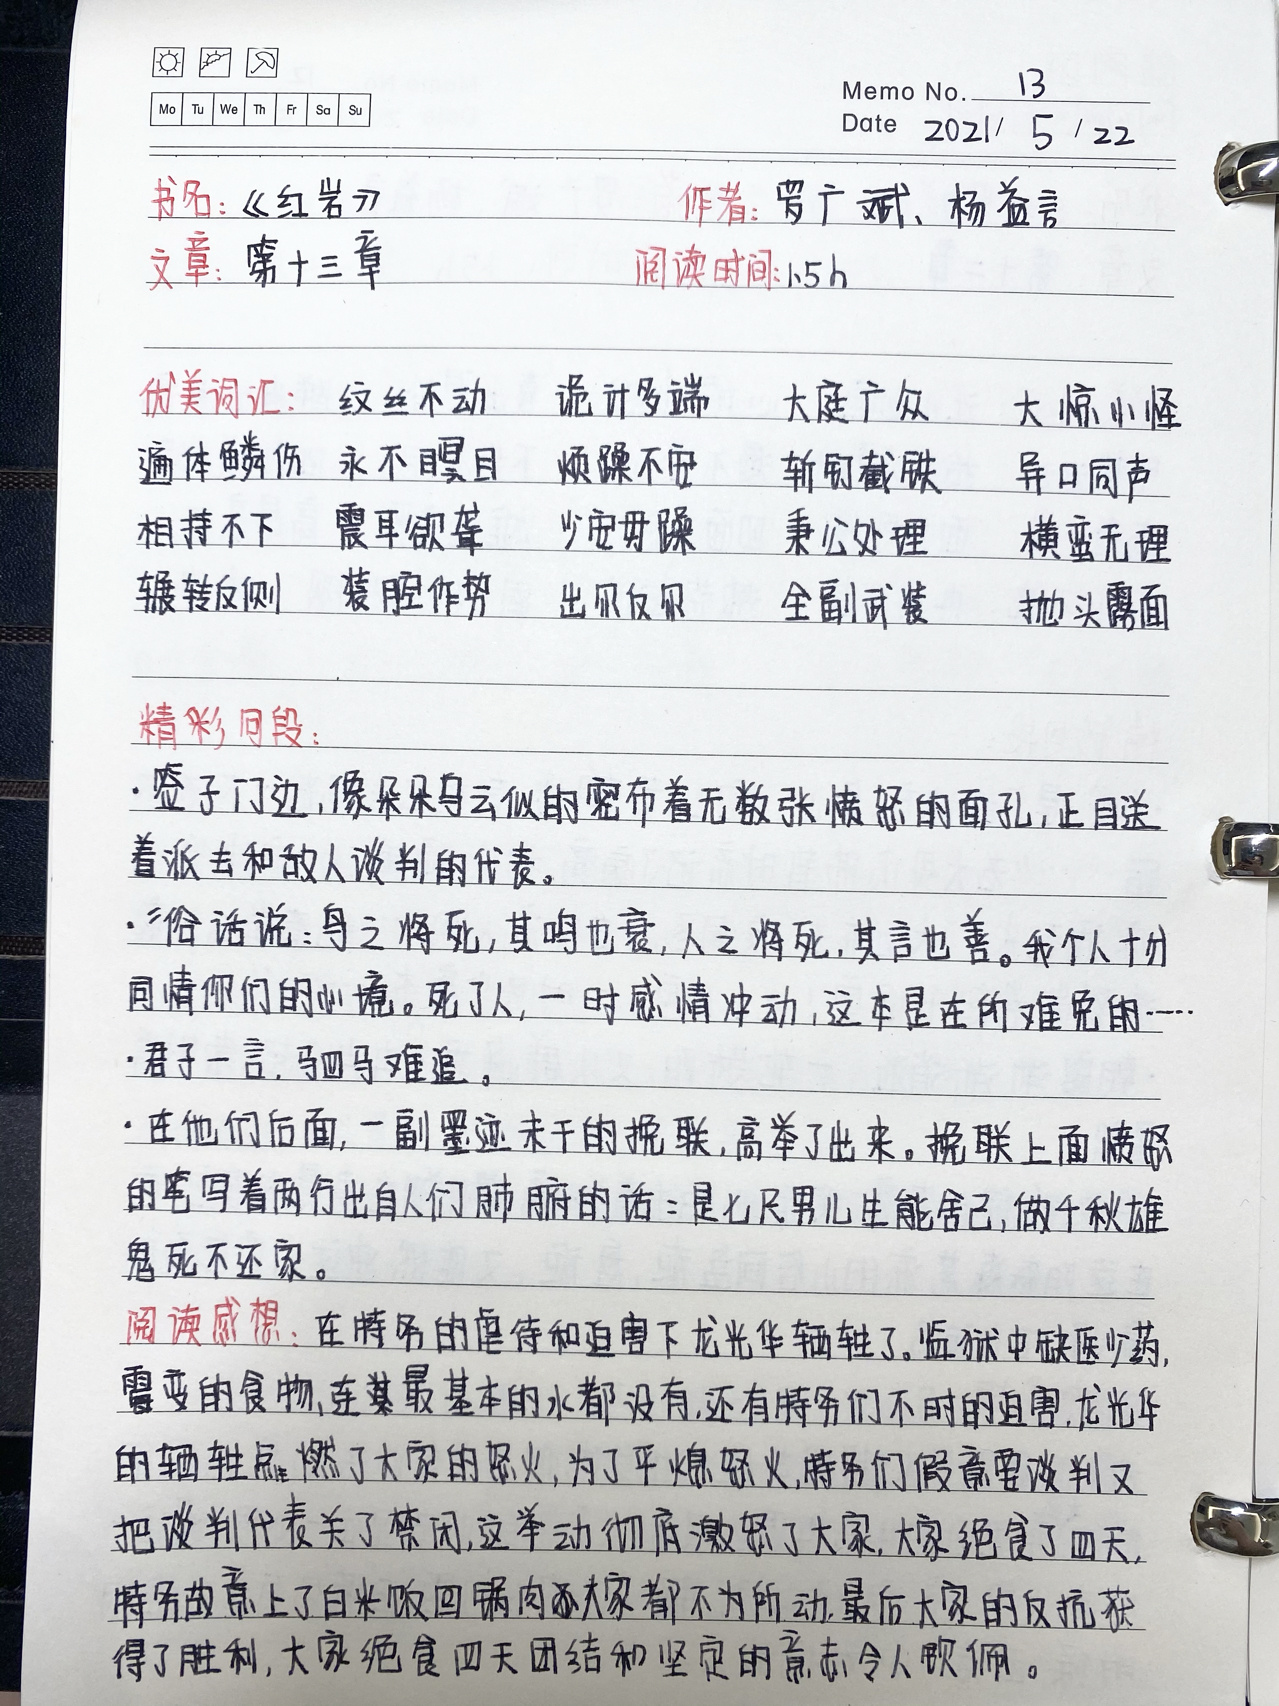 Mo Tu We Th Fr Sa Su
Memo No. 13
Date 2021/ 5 / 22
书名:《红岩》 作者:罗广斌、杨益言
文章:第十三章 阅读时间:1.5h
优美词汇: 纹丝不动 诡计多端 大庭广众 大惊小怪
遍体鳞伤 永不瞑目 烦躁不安 斩钉截铁 异口同声
相持不下 震耳欲聋 少安毋躁 秉公处理 横蛮无理
辗转反侧 装腔作势 出尔反尔 全副武装 抛头露面
精彩句段:
·签子门边,像朵朵乌云似的密布着无数张愤怒的面孔,正目送
着派去和敌人谈判的代表。
·俗话说:鸟之将死,其鸣也哀,人之将死,其言也善。我个人十分
同情你们的心境。死了人,一时感情冲动,这本是在所难免的……
·君子一言,驷马难追。
·在他们后面,一副墨迹未干的挽联,高举了出来。挽联上面愤怒
的笔写着两行出自人们肺腑的话:是七尺男儿生能舍己,做千秋雄
鬼死不还家。
阅读感想:在特务的虐待和迫害下龙光华牺牲了。监狱中缺医少药,
霉变的食物,连最基本的水都没有,还有特务们不时的迫害,龙光华
的牺牲点燃了大家的怒火,为了平熄怒火,特务们假意要谈判又
把谈判代表关了禁闭,这举动彻底激怒了大家,大家绝食了四天,
特务故意上了白米饭回锅肉大家都不为所动,最后大家的反抗获
得了胜利,大家绝食四天团结和坚定的意志令人钦佩。